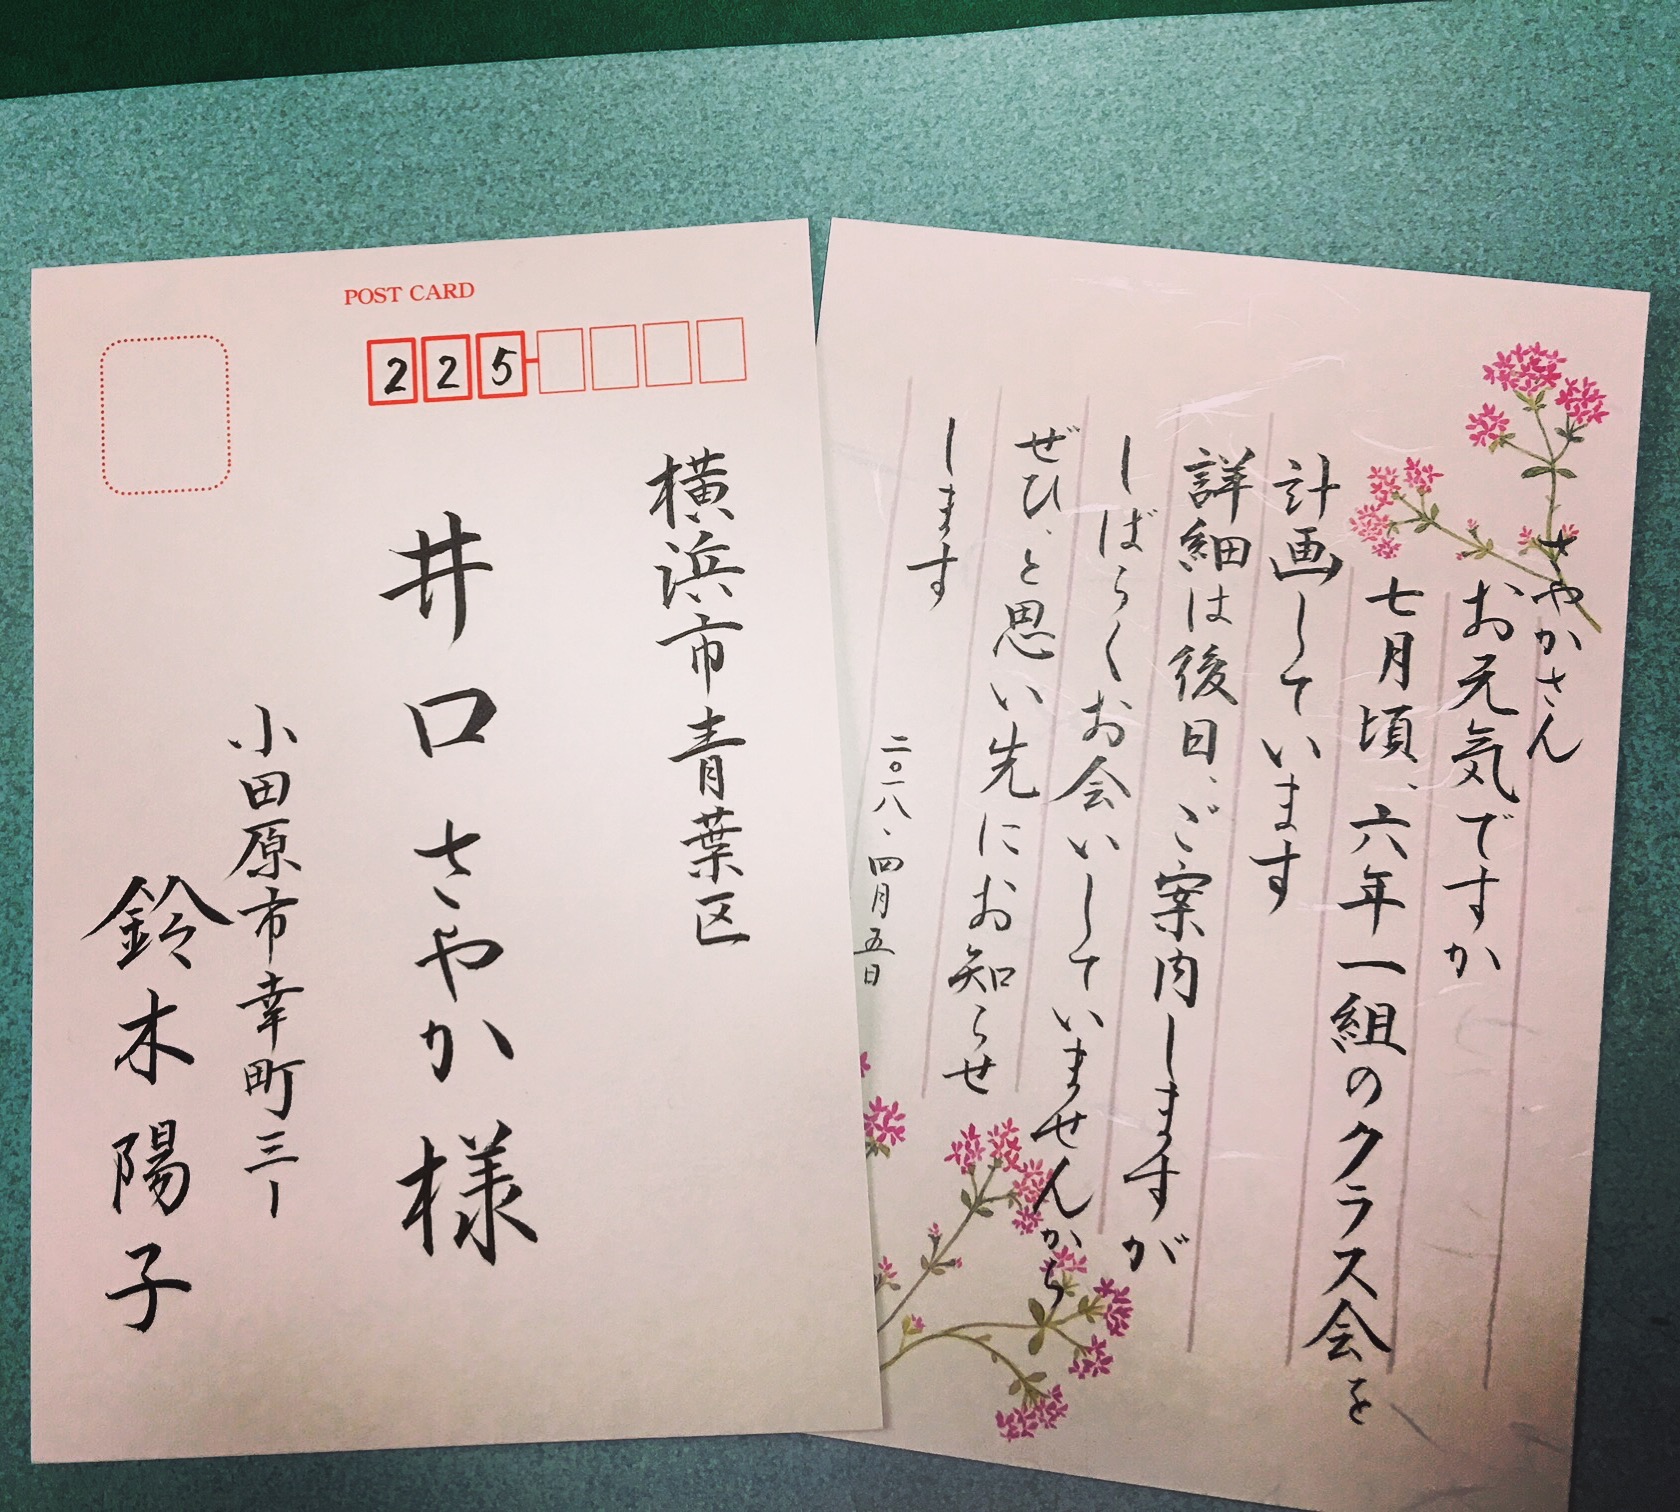 POST CARD
225
横浜市青葉区
井口さやか様
小田原市幸町三ー
鈴木陽子
さやかさん
お元気ですか
七月頃、六年一組のクラス会を
計画しています
詳細は後日、ご案内しますが
しばらくお会いしていませんから
ぜひ、と思い先にお知らせ
します
二〇一八、四月五日